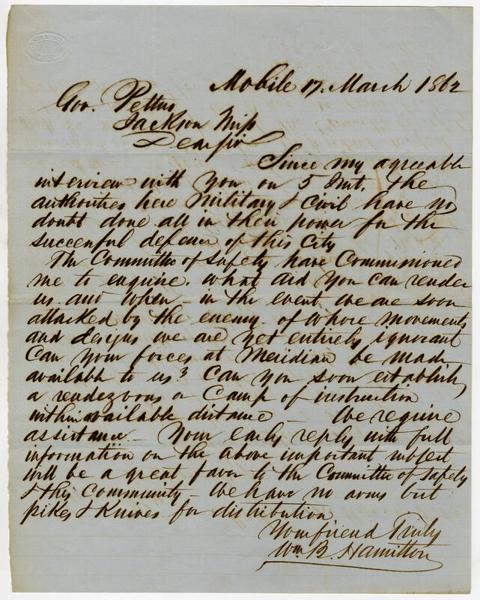 Mobile 17 March 1862
Gov. Pettus
Jackson Miss
Dear Sir
Since my agreeable
interview with you on 5 Inst, the
authorities here Military & Civil have no
doubt done all in their power for the
successful defence of this City
The Committee of Safety have Commissioned
me to enquire. what aid You can render
us. and when - in the event we are soon
attacked by the enemy of whose movements
and designs we are yet entirely ignorant
Can your forces at Meridian be made
available to us? Can you soon establish
a rendezvous or Camp of instruction
within available distance We require
assistance - Your early reply with full
information on the above important subject
will be a great favor to the Committee of Safety
& this Community We have no arms but
pikes & Knives for distribution
Your friend Truly
Wm. B. Hamilton